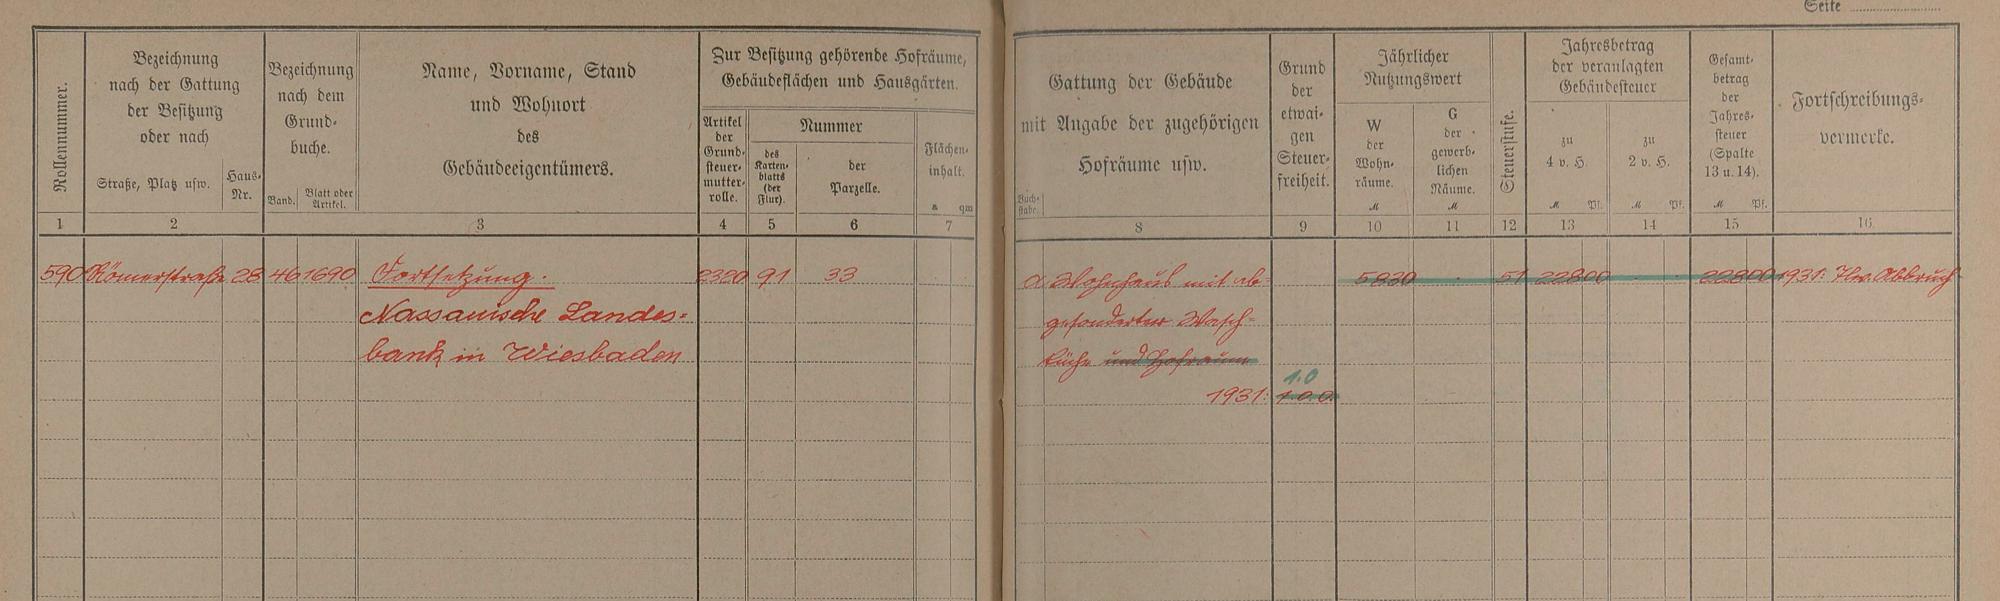 Seite
Rollennummer.
Bezeichnung
nach der Gattung
der Besitzung
oder nach
Straße, Platz usw.
Haus-
Nr.
Bezeichnung
nach dem
Grund-
buche.
Band.
Blatt oder
Artikel.
Name, Vorname, Stand
und Wohnort
des
Gebäudeeigentümers.
Zur Besitzung gehörende Hofräume,
Gebäudeflächen und Hausgärten.
Artikel
der
Grund-
steuer-
mutter-
rolle.
Nummer
des
Karten-
blatts
(der
Flur).
der
Parzelle.
Flächen-
inhalt.
a qm
Gattung der Gebäude
mit Angabe der zugehörigen
Hofräume usw.
Buch-
stabe.
Grund
der
etwai-
gen
Steuer-
freiheit.
Jährlicher
Nutzungswert
W
der
Wohn-
räume.
M
G
der
gewerb-
lichen
Räume.
M
Steuerstufe.
Jahresbetrag
der veranlagten
Gebäudesteuer
zu
4 v. H.
M Pf.
zu
2 v. H.
M Pf.
Gesamt-
betrag
der
Jahres-
steuer
(Spalte
13 u. 14).
M Pf.
Fortschreibungs-
vermerke.
1 2 3 4 5 6 7 8 9 10 11 12 13 14 15 16
590 Römerstraße 28 46 1690 Fortsetzung. 2320 91 33 a Wohnhaus mit ab- 5830 51 22800 22800 1931: Abbruch
Nassauische Landes- gesonderter Wasch-
bank in Wiesbaden küche und Hofraum
1.0
1931: 100.